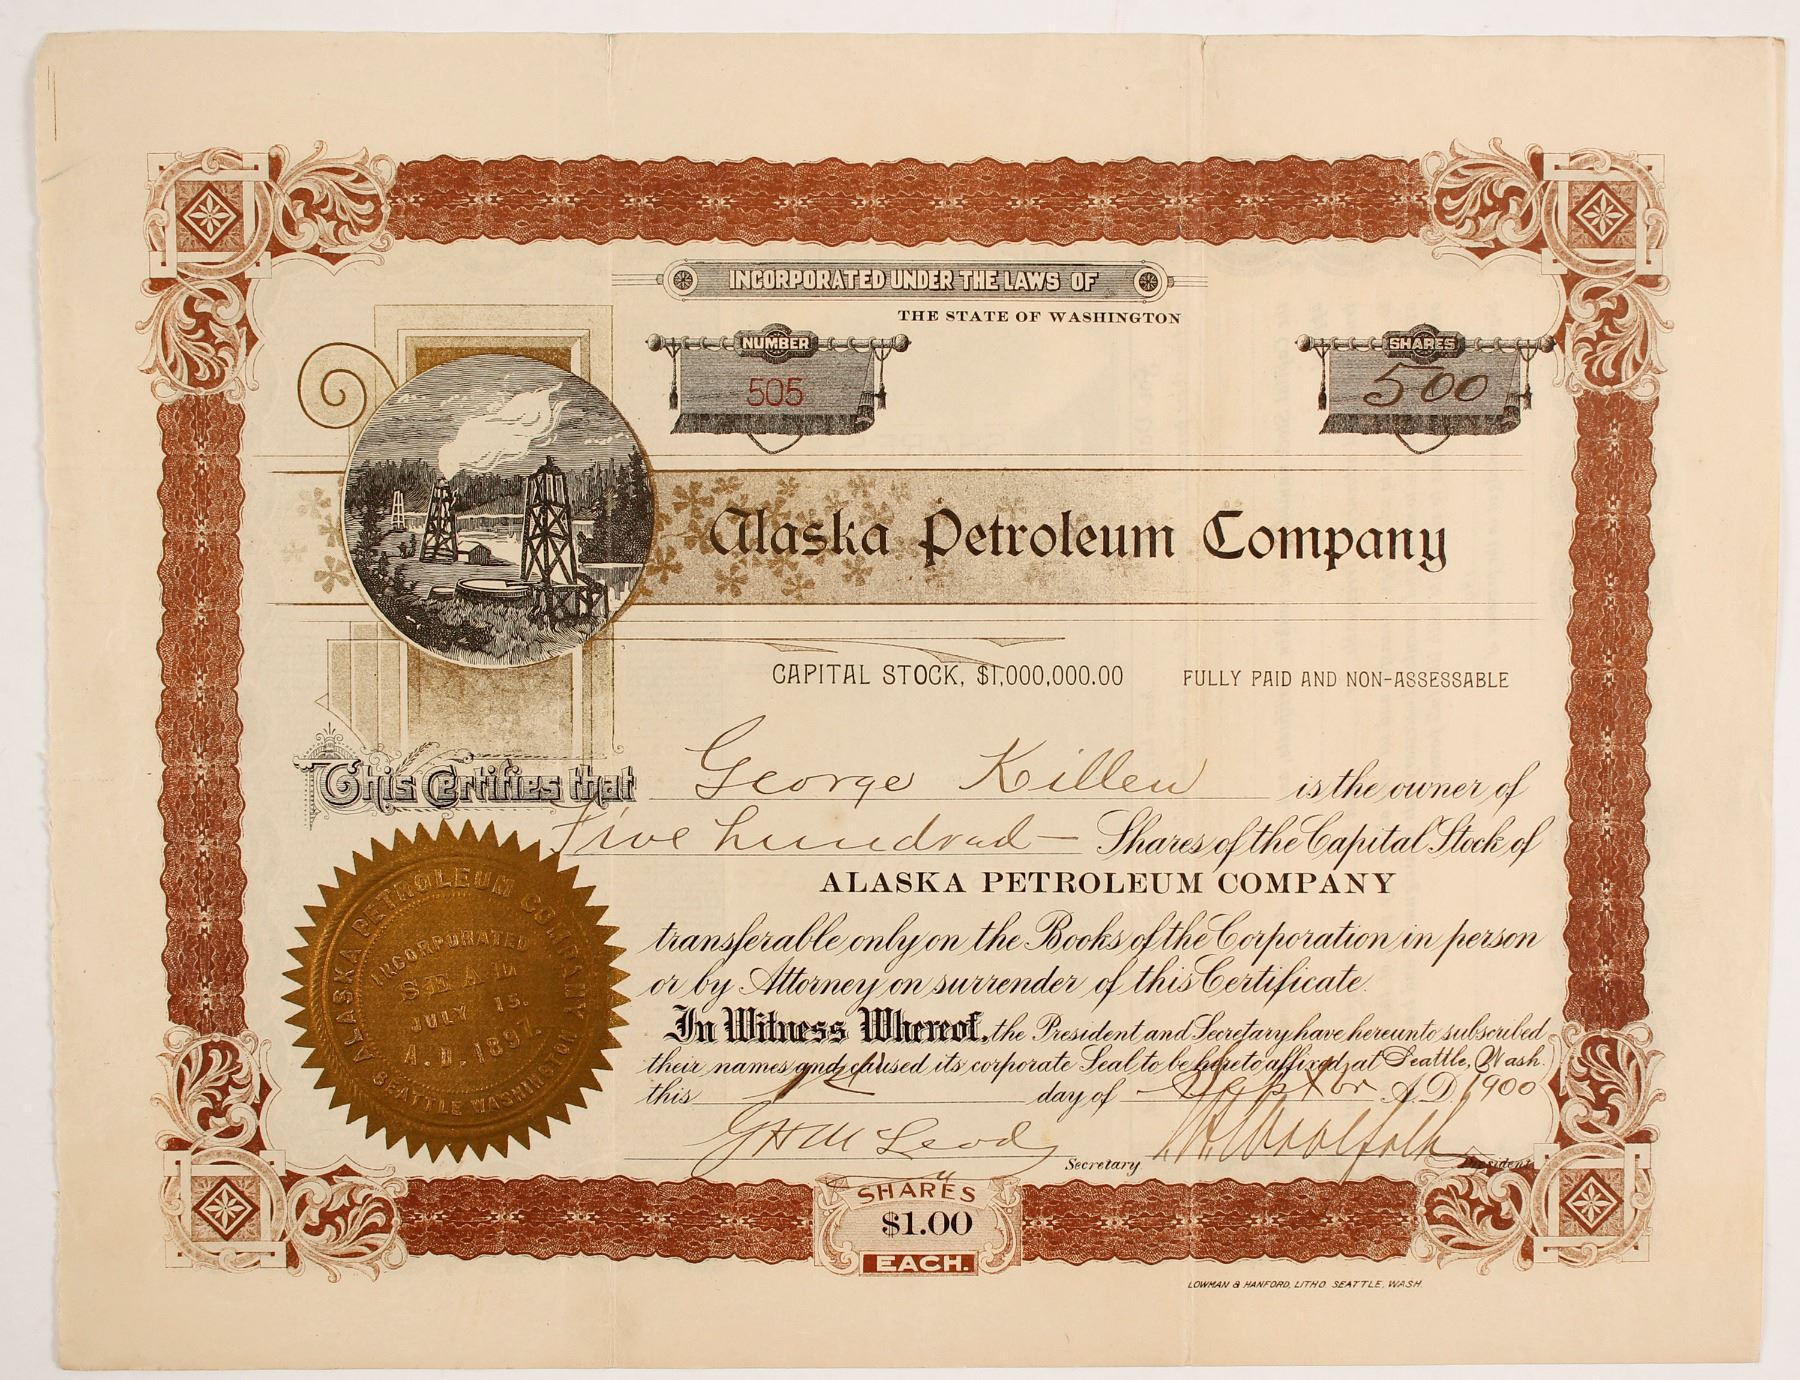 INCORPORATED UNDER THE LAWS OF
THE STATE OF WASHINGTON
NUMBER
505
SHARES
500
Alaska Petroleum Company
CAPITAL STOCK, $1,000,000.00 FULLY PAID AND NON-ASSESSABLE
This Certifies that George Killen is the owner of
Five hundred — Shares of the Capital Stock of
ALASKA PETROLEUM COMPANY
transferable only on the Books of the Corporation in person
or by Attorney on surrender of this Certificate.
In Witness Whereof, the President and Secretary have hereunto subscribed
their names and caused its corporate Seal to be hereto affixed, at Seattle, Wash.
this day of A.D. 1900
G H McLeod Secretary Woolfolk President
ALASKA PETROLEUM COMPANY
INCORPORATED
SEAL
JULY 15.
A.D. 1897.
SEATTLE WASHINGTON
SHARES
$1.00
EACH.
LOWMAN & HANFORD, LITHO. SEATTLE, WASH.